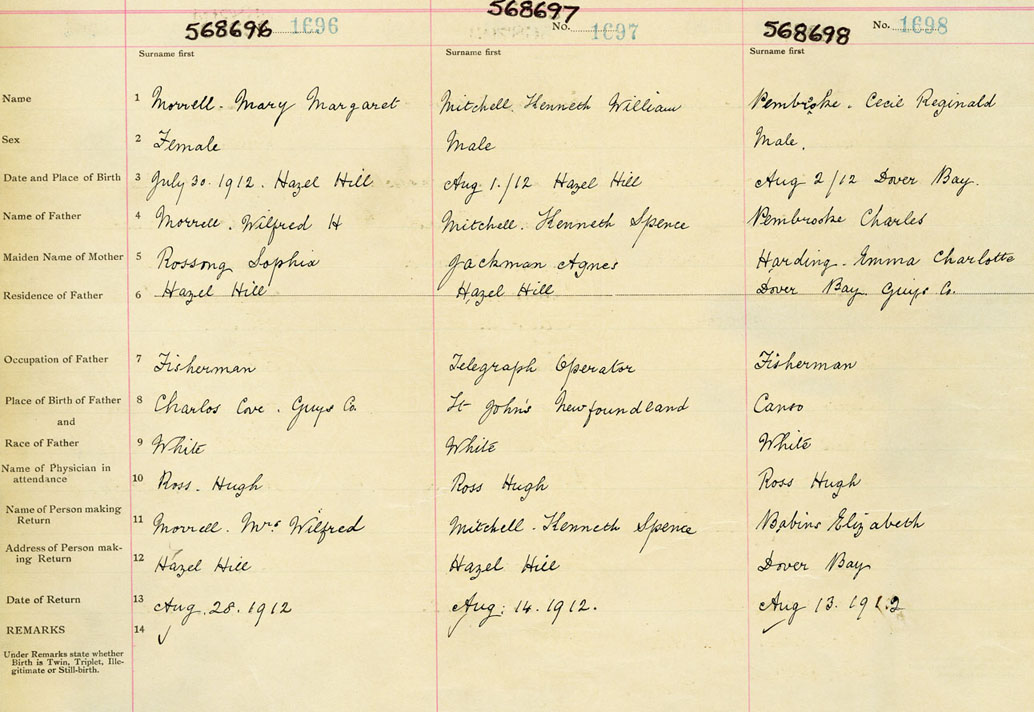 568696 1696 568697 No. 1697 568698 No. 1698
Surname first Surname first Surname first
Name 1 Morrell. Mary Margaret Mitchell. Kenneth William Pembroke. Cecil Reginald
Sex 2 Female Male Male.
Date and Place of Birth 3 July 30. 1912. Hazel Hill Aug 1./12 Hazel Hill Aug 2/12 Dover Bay.
Name of Father 4 Morrell. Wilfred H Mitchell. Kenneth Spence Pembrooke Charles
Maiden Name of Mother 5 Rossong Sophia Jackman Agnes Harding. Emma Charlotte
Residence of Father 6 Hazel Hill Hazel Hill Dover Bay Guys Co.
Occupation of Father 7 Fisherman Telegraph Operator Fisherman
Place of Birth of Father 8 Charlos Cove. Guys Co. St John's Newfoundland Canso
and
Race of Father 9 White White White
Name of Physician in
attendance 10 Ross. Hugh Ross Hugh Ross Hugh
Name of Person making
Return 11 Morrell. Mrs Wilfred Mitchell. Kenneth Spence Babins Elizabeth
Address of Person mak-
ing Return 12 Hazel Hill Hazel Hill Dover Bay
Date of Return 13 Aug. 28. 1912 Aug: 14. 1912. Aug 13. 1912
REMARKS 14
Under Remarks state whether
Birth is Twin, Triplet, Ille-
gitimate or Still-birth.